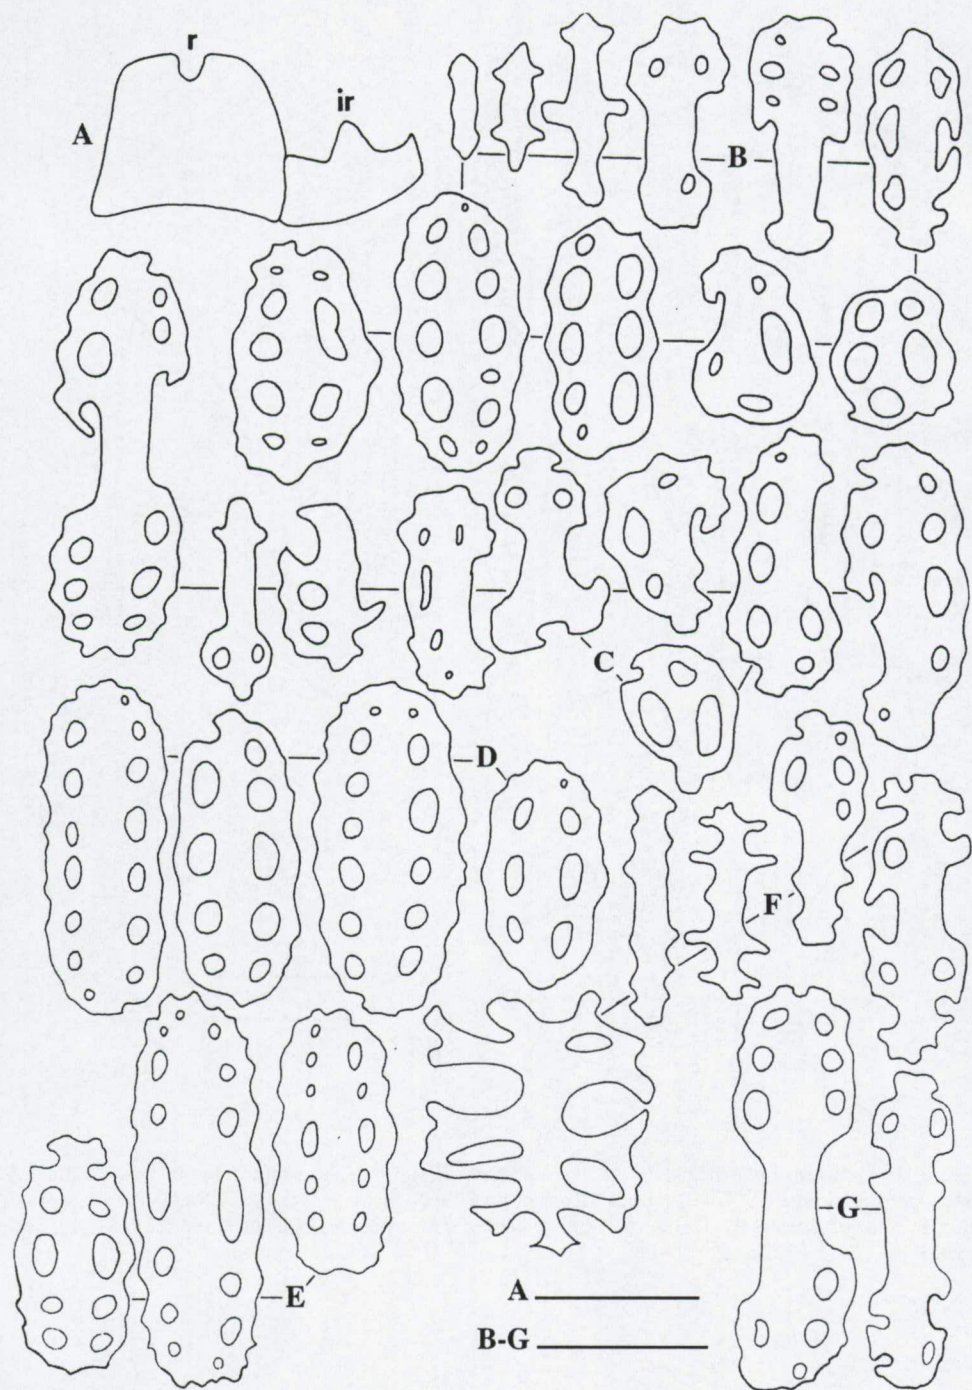 r
ir
A
B
C
D
F
G
E
A
B-G